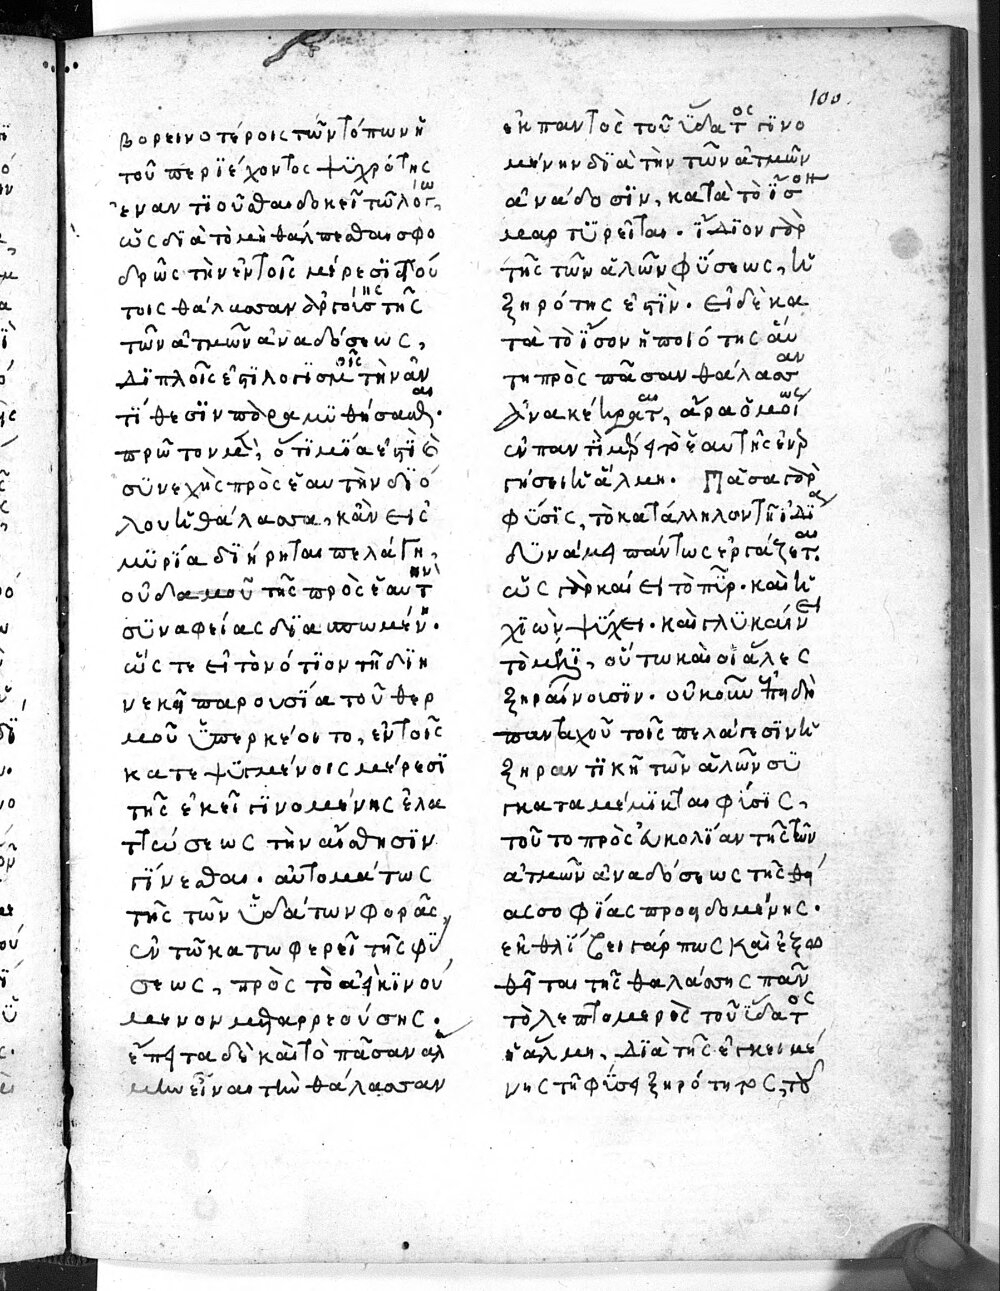 100
βορεινοτέροις τῶν τόπων ἢ
τοῦ περιέχοντος ψυχρότης
ἐναντιοῦσθαι δοκεῖ τῶ λόγω,
ὡς διὰ τὸ μὴ θάλπεσθαι σφο
δρῶς τὴν ἐν τοῖς μέρεσι τού
τοις θάλασσαν ἀργοίσης τῆς
τῶν ἀτμῶν ἀναδόσεως,
διπλοῖς ἐπιλογισμοῖς τὴν ἀν
τίθεσιν παραμυθήσασθαι.
πρῶτον μὲν, ὅτι μία ἐστὶ
συνεχὴς πρὸς ἑαυτὴν δι ὅ
λου ἡ θάλασσα, κἂν εἰς
μυρία διήρηται πελάγη,
οὐδαμοῦ τῆς πρὸς ἑαυτὴν
συναφείας διασπωμένη.
ὥστε εἰ τὸ νότιον τῆ διη
νεκῆ παρουσία τοῦ θερ
μοῦ ὑπερκέοιτο, ἐν τοῖς
κατεψυγμένοις μέρεσι
τῆς ἐκεῖ γινομένης ἐλα
ττώσεως τὴν αἴσθησιν
γίνεσθαι. αὐτομάτως
τῆς τῶν ὑδάτων φορᾶς,
ἐν τῶ κατωφερεῖ τῆς φύ
σεως, πρὸς τὸ ἀεὶ κινού
μενον μεταρρεούσης.
ἔπειτα δὲ καὶ τὸ πᾶσαν ἁλ
μὴν εἶναι τὴν θάλασσαν
ἐκ παντὸς τοῦ ὕδατος γινο
μένην διὰ τὴν τῶν ἀτμῶν
ἀνάδοσιν, κατὰ τὸ ἴσον
μαρτυρεῖται. ἴδιον γὰρ
τῆς τῶν ἁλῶν φύσεως, ἡ
ξηρότης ἐστὶν. εἰ δὲ κα
τὰ τὸ ἴσον ἡ ποιότης αὕ
τη πρὸς πᾶσαν θάλασσαν
ἀνακέκραται, ἆρα ὁμοίως
ἐν παντὶ μέρει τὸ ἑαυτῆς ἐνερ
γήσει ἡ ἅλμη. Πᾶσα γὰρ
φύσις, τὸ κατάλληλον τῆ ἰδία
δυνάμει πάντως ἐργάζεται.
ὡς γὰρ καίει τὸ πῦρ. καὶ ἡ
χιὼν ψύχει. καὶ γλυκαίνει
τὸ μέλι, οὕτω καὶ οἱ ἅλες
ξηραίνουσιν. οὐκοῦν ἐπειδὴ
πανταχοῦ τοῖς πελάγεσιν ἡ
ξηραντικὴ τῶν ἁλῶν συ
γκαταμέμικται φύσις,
τοῦτο πρὸς εὐκολίαν τῆς τῶν
ἀτμῶν ἀναδόσεως τῆς θεί
ας σοφίας προειδομένης.
ἐκθλίβει γάρ πως καὶ ἐξω
θεῖται τῆς θαλάσσης πᾶν
τὸ λεπτομερὲς τοῦ ὕδατος
ἡ ἅλμη, διὰ τῆς ἐγκειμέ
νης τῆ φύσει ξηρότητος, τοῦ